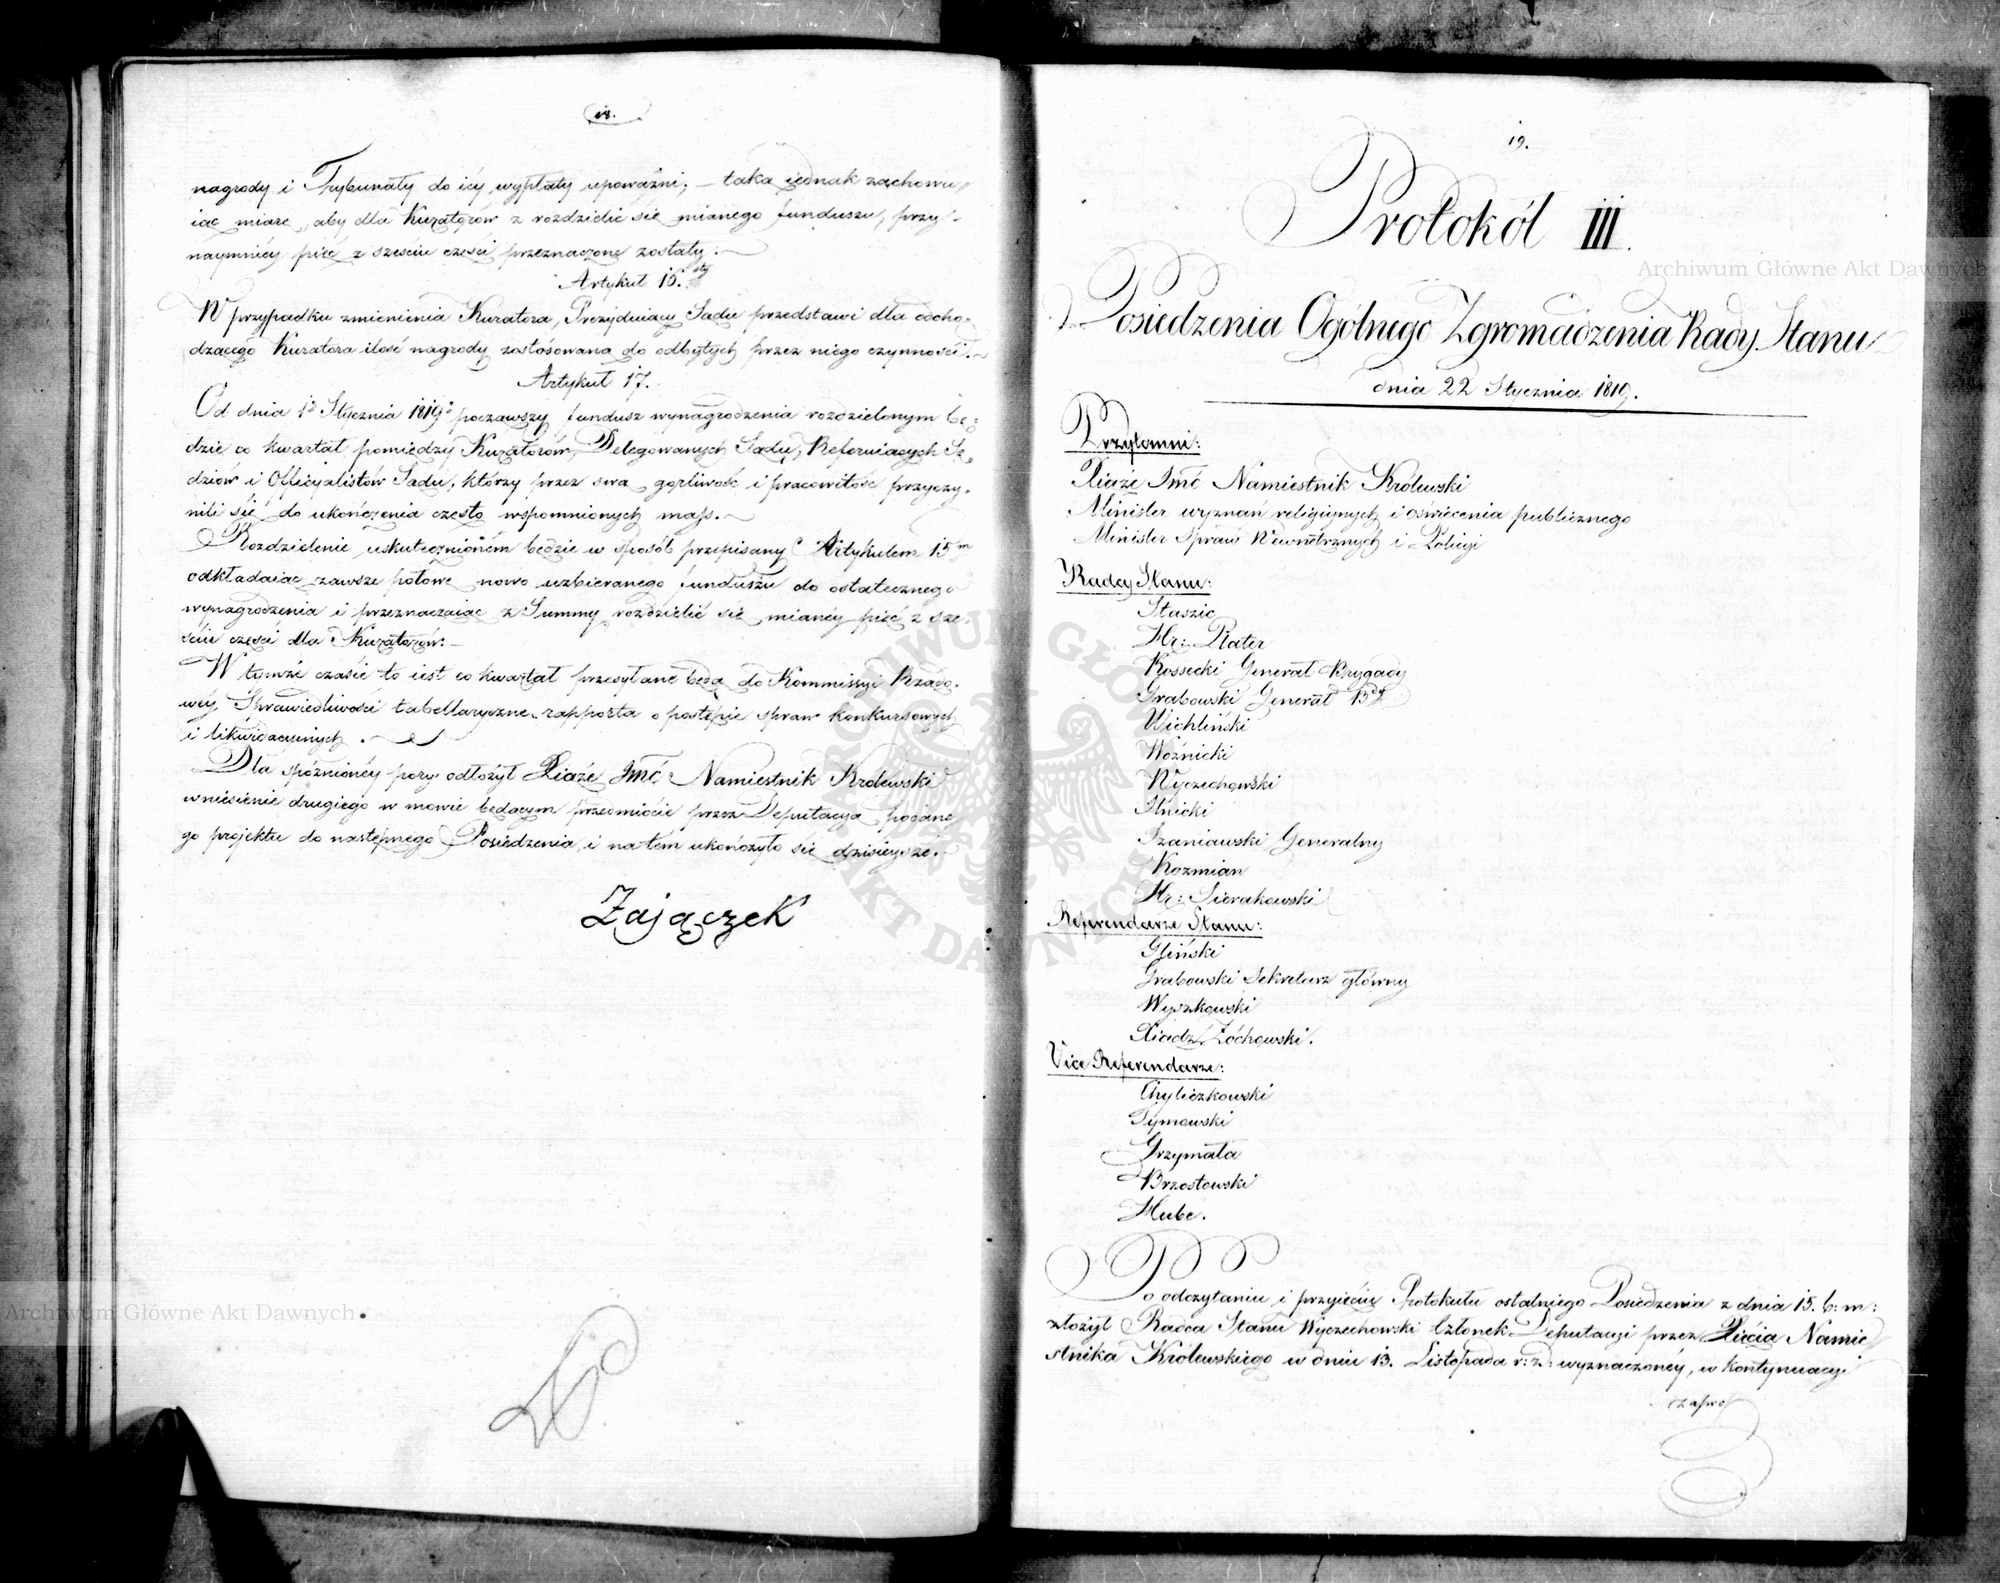 18.
nagrody i Trybunały do iéy wypłaty upoważni; – taką iednak zachowu-
iąc miarę, aby dla Kuratorów z rozdzielić się mianego funduszu, przy-
náymniéy pięć z sześciu części przeznaczone zostały.
Artykuł 16.sty
W przypadku zmienienia Kuratora, Prezyduiący Sądu przedstawi dla odcho-
dzącego Kuratora ilość nagrody zastósowaną do odbytych przez niego czynności.
Artykuł 17.
Od dnia 1º Stycznia 1819º począwszy fundusz wynagrodzenia rozdzielonym bę-
dzie co kwartał pomiędzy Kuratorów, Delegowanych Sądu, Referuiących Sę-
dziów i Officyalistów Sądu, którzy przez swą gorliwość i pracowitość przyczy-
nili się do ukończenia często wspomnionych mass.
Rozdzielenie uskutecznioném będzie w sposób przepisany Artykułem 15m
odkładaiąc zawsze połowę nowo uzbieranego funduszu do ostatecznego
wynagrodzenia i przeznaczaiąc z Summy rozdzielić się mianéy pięć z sze-
ściu części dla Kuratorów.
W tymże czasie to iest co kwartał przesyłane będą do Kommissyi Rządo-
wéy Sprawiedliwości tabellaryczne rapporta o postępie spraw konkursowych
i likwidacyinych.
Dla spóźnionéy pory odłożył Xiąże Jmć Namiestnik Królewski
wniesienie drugiego w mowie będącym przedmiocie przez Deputacyą podane-
go projektu do następnego Posiedzenia, i na tém ukończyło się dzisiéysze.
Zajączek
19.
Protokół III.
Posiedzenia Ogólnego Zgromadzenia Rady Stanu
dnia 22 Stycznia 1819.
Przytomni:
Xiąże Jmć Namiestnik Królewski
Minister wyznań religiynych i oświécenia publicznego
Minister Spraw Wewnętrznych i Policyi
Radcy Stanu:
Staszic
Hr: Plater
Kossecki Generał Brygady
Grabowski Generał
Wichliński
Woźnicki
Wyczechowski
Ilnicki
Szaniawski Generalny
Kozmian
Hr: Sierakowski
Referendarze Stanu:
Gliński
Grabowski Sekretarz główny
Wyszkowski
Xiądz Żóchowski.
Vice Referendarze:
Chyliczkowski
Tymowski
Grzymała
Brzostowski
Hube.
Po odczytaniu i przyięciu Protokułu ostatniego Posiedzenia z dnia 15. b: m:
złożył Radca Stanu Wyczechowski Członek Deputacyi przez Xięcia Namie-
stnika Królewskiego w dniu 13. Listopada r: z: wyznaczonéy, w kontynuacyi
Archiwum Główne Akt Dawnych
Archiwum Główne Akt Dawnych
ARCHIWUM GŁÓWNE AKT DAWNYCH